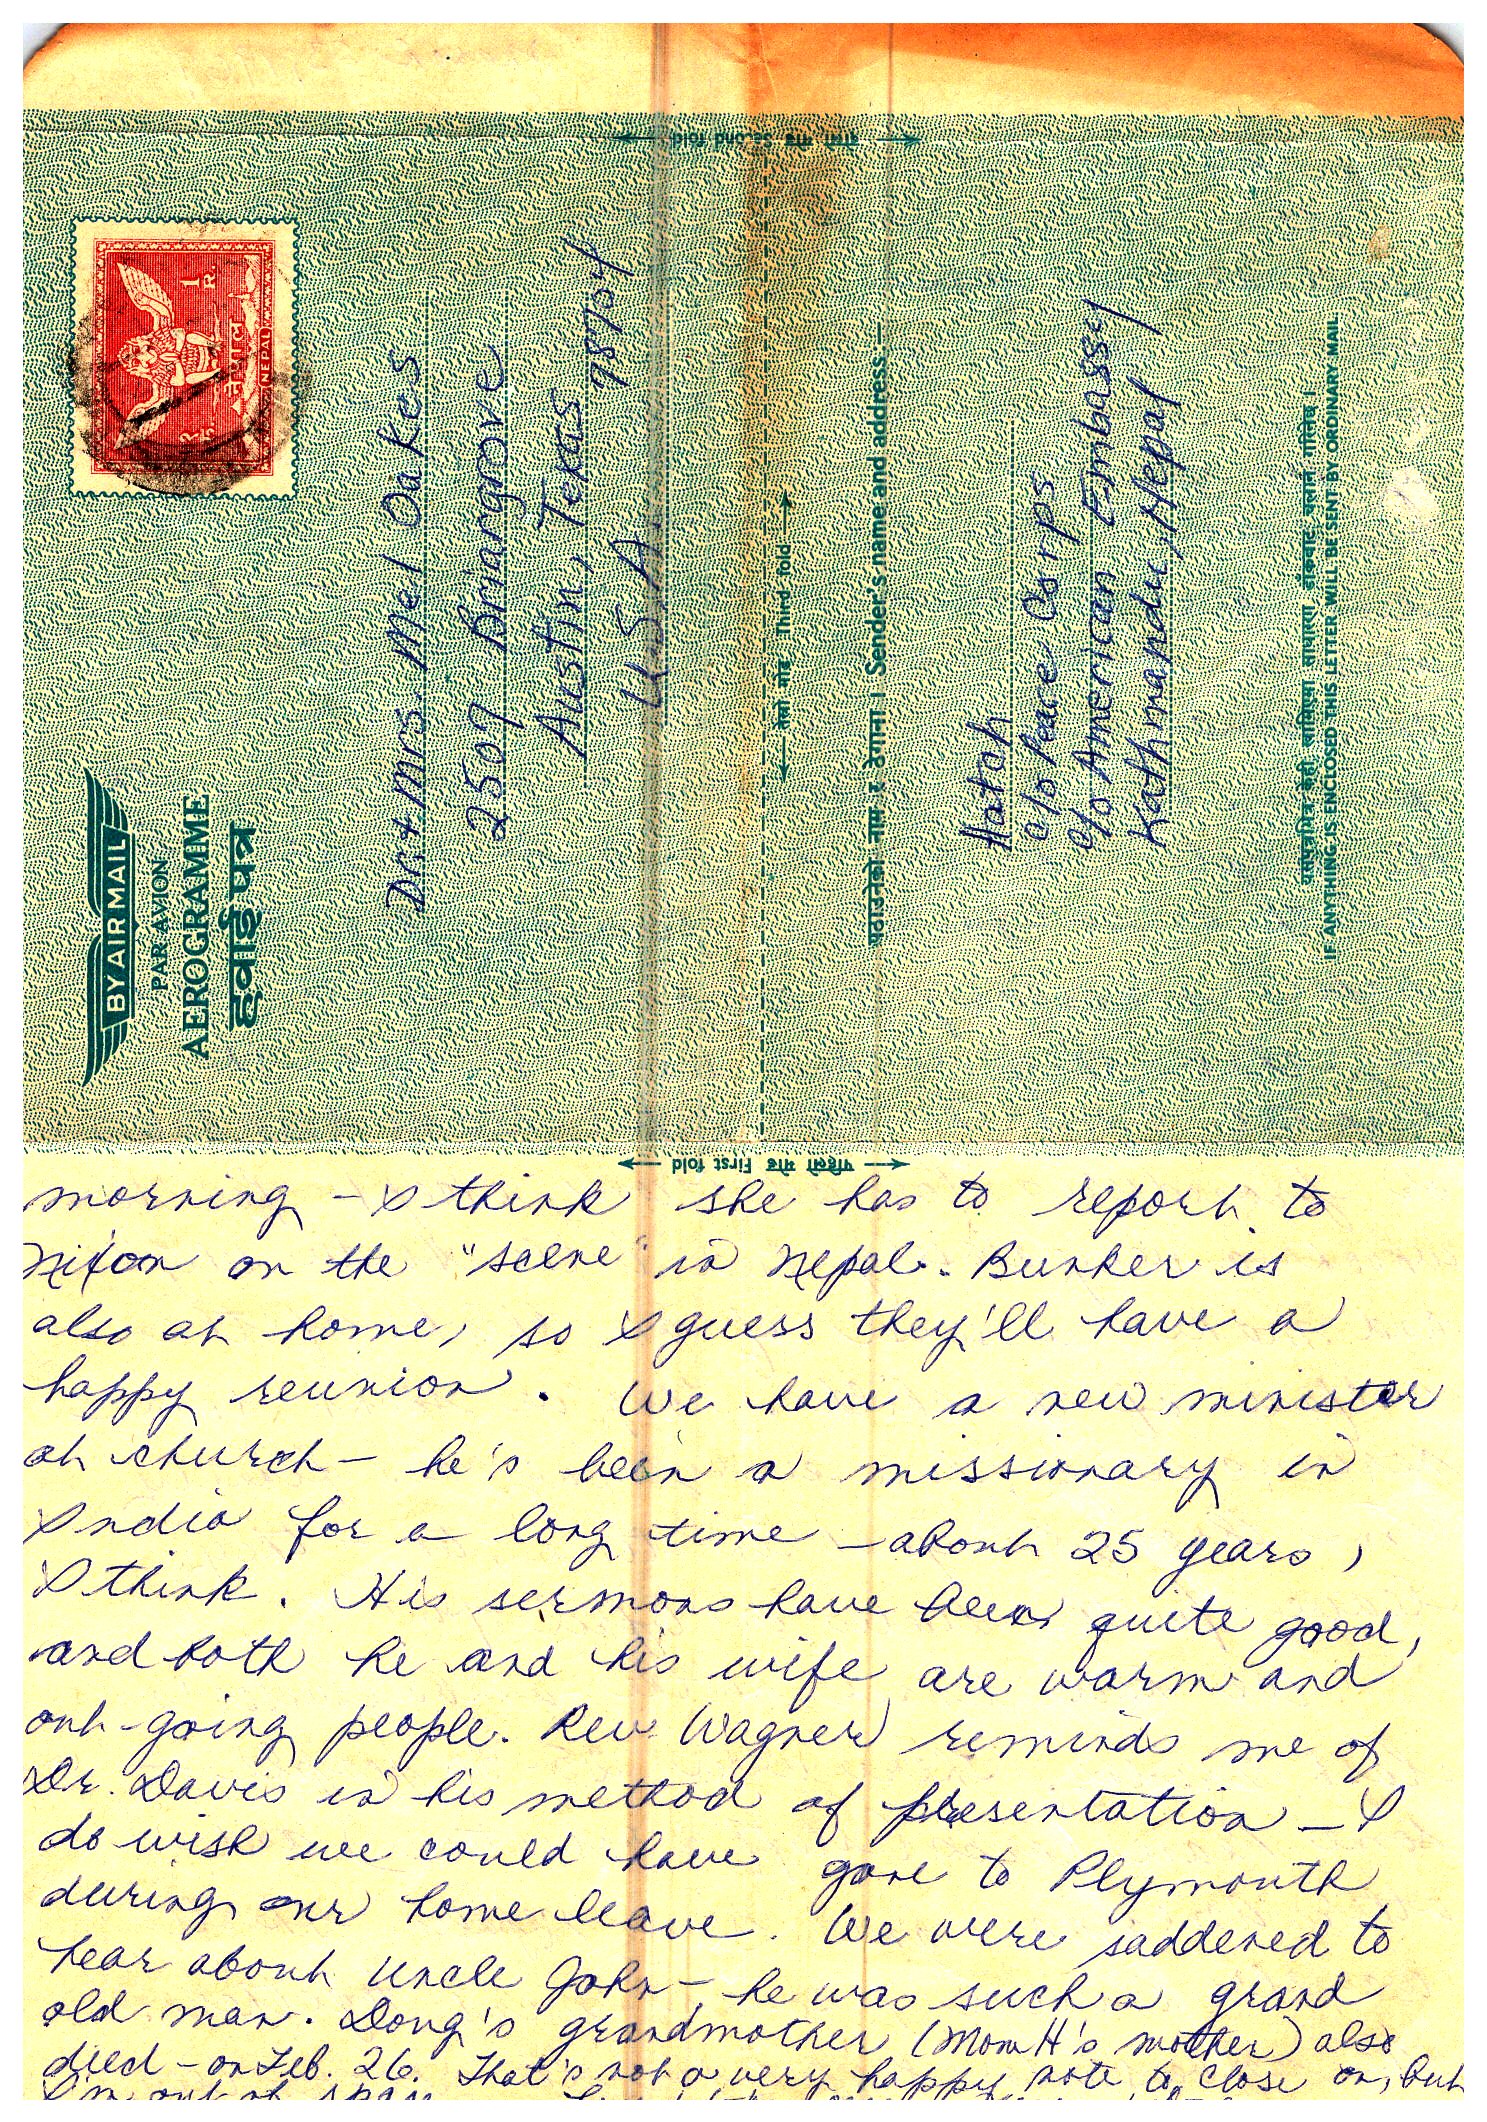 दोस्रो मोड Second fold
BY AIR MAIL
PAR AVION
AEROGRAMME
हवाई पत्र
1
R.
रु.
नेपाल
NEPAL
Dr. + Mrs. Mel Oakes
2507 Briargrove
Austin, Texas 78704
U.S.A.
तेस्रो मोड Third fold
पठाउनेको नाम र ठेगाना । Sender's name and address:—
Hatch
c/o Peace Corps
c/o American Embassy
Kathmandu, Nepal
यसपत्रभित्र केही राखिएमा साधारण डाँकबाट चलान गरिनेछ ।
IF ANYTHING IS ENCLOSED THIS LETTER WILL BE SENT BY ORDINARY MAIL
पहिलो मोड First fold
morning – I think she has to report to
Nixon on the "scene" in Nepal. Bunker is
also at home, so I guess they'll have a
happy reunion. We have a new minister
at church – he's been a missionary in
India for a long time – about 25 years,
I think. His sermons have been quite good,
and both he and his wife are warm and
out-going people. Rev. Wagner reminds me of
Dr. Davis in his method of presentation – I
do wish we could have gone to Plymouth
during our home leave. We were saddened to
hear about Uncle John – he was such a grand
old man. Doug's grandmother (Mom H's mother) also
died – on Feb. 26. That's not a very happy note to close on, but
I'm out of space